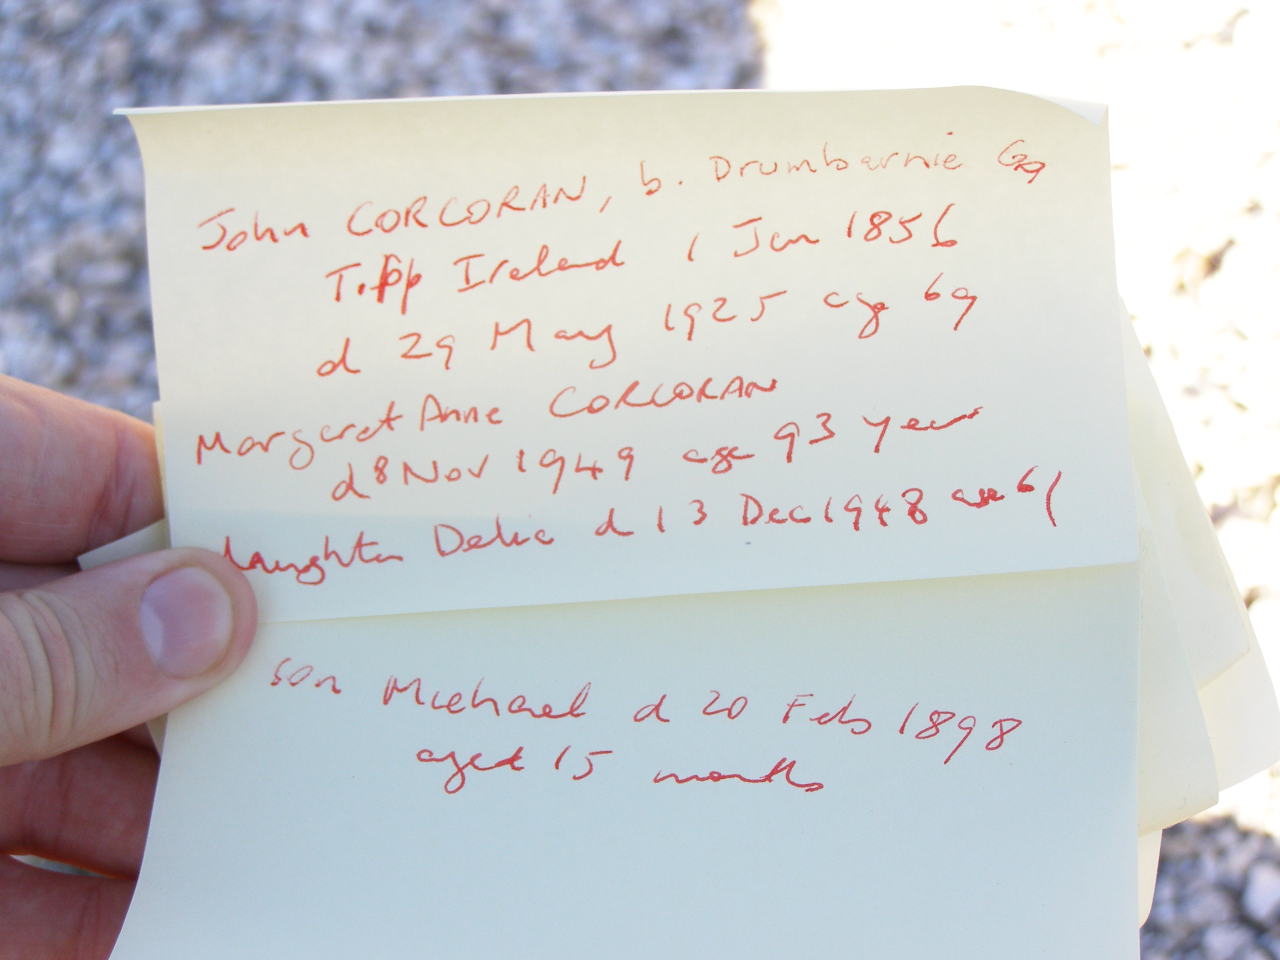 John CORCORAN, b. Drumbarnie Co
Tipp Ireland 1 Jan 1856
d 29 May 1925 age 69
Margaret Anne CORCORAN
d 8 Nov 1949 age 93 year
daughter Delia d 13 Dec 1948 age 61
son Michael d 20 Feb 1898
aged 15 months